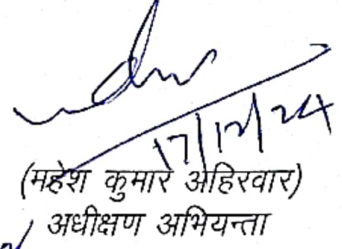 17/12/24
(महेश कुमार अहिरवार)
अधीक्षण अभियन्ता